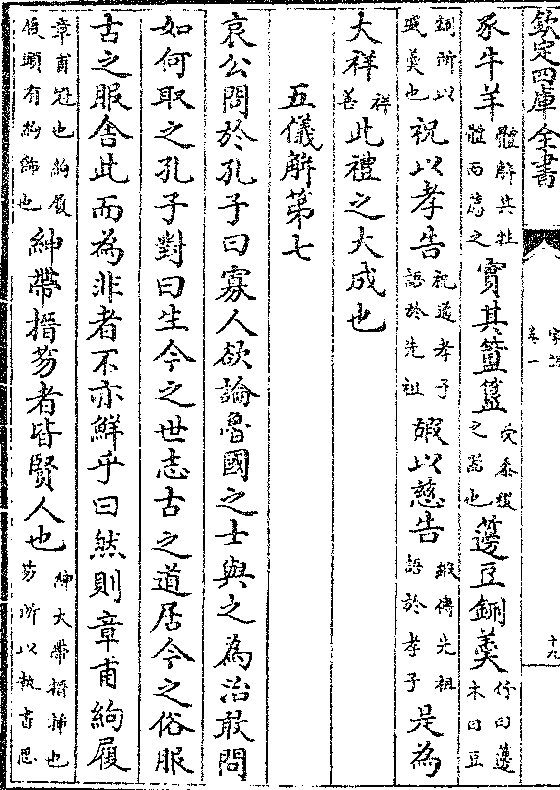 欽定四庫全書
家語
卷一
十九
豕牛羊體解其牲體而薦之實其簠簋受黍稷之器也籩豆鉶羹竹曰籩木曰豆
鉶所以盛羹也祝以孝告祝通孝子語於先祖嘏以慈告嘏傳先祖語於孝子是為
大祥祥善此禮之大成也
五儀解第七
哀公問於孔子曰寡人欲論魯國之士與之為治敢問
如何取之孔子對曰生今之世志古之道居今之俗服
古之服舍此而為非者不亦鮮乎曰然則章甫絇履
章甫冠也絇履履頭有絇飾也紳帶搢笏者皆賢人也紳大帶搢揷也笏所以執書思